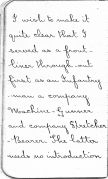 I wish to make it
quite clear that I
served as a front-
liner through-out
first as an Infantry
-man a company
Machine-Gunner
and company Stretcher
-Bearer. The latter
needs no introduction